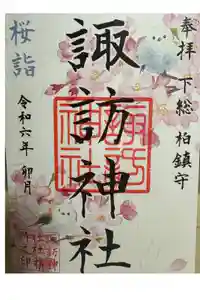 奉拝 下総 柏鎮守
諏訪神社
桜詣
令和六年 卯月
諏訪神社